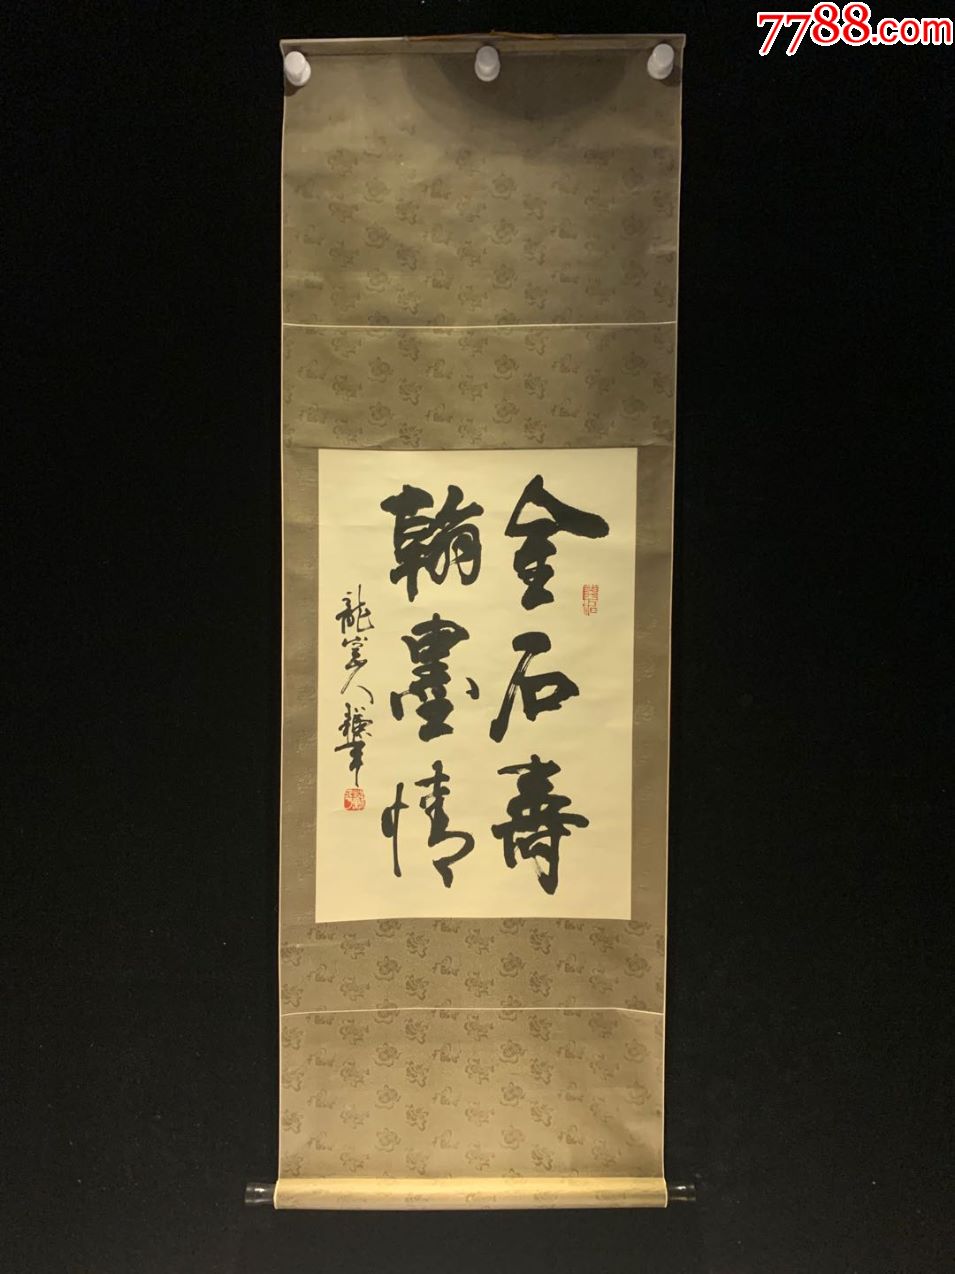 7788.com
金石壽
翰墨情
龍窩人